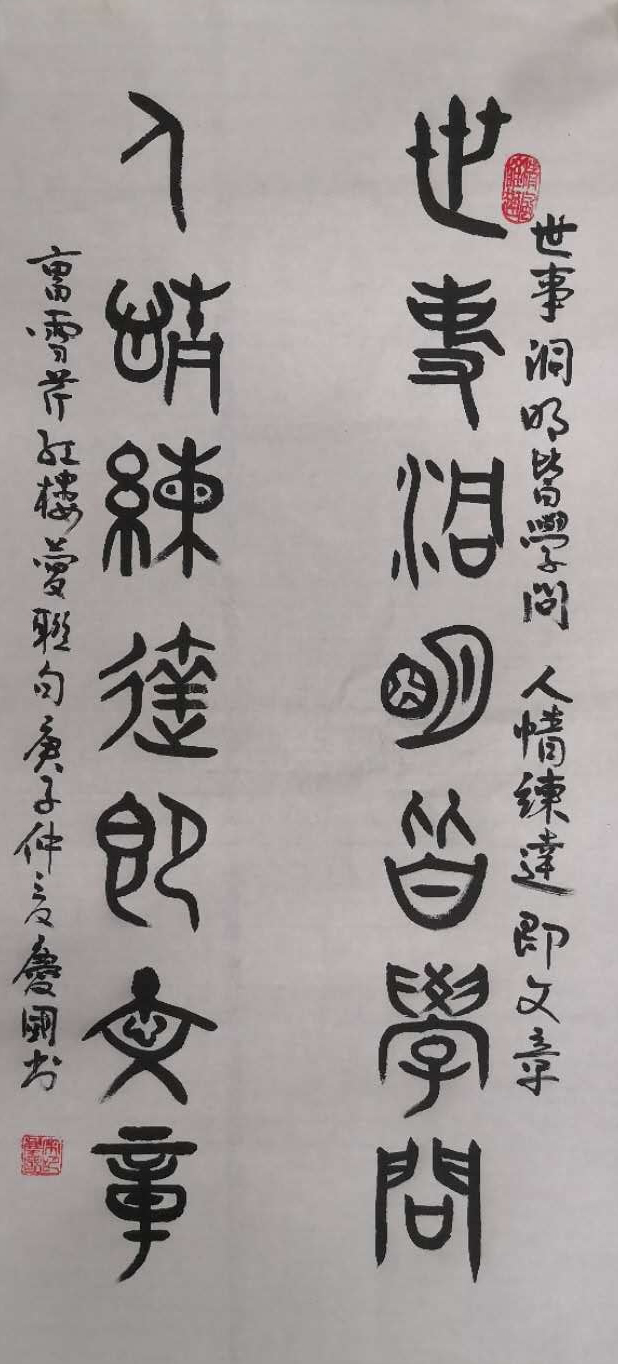 世事洞明皆學問 人情練達即文章
世事洞明皆學問
人情練達即文章
曹雪芹紅樓夢聯句庚子仲夏慶國书